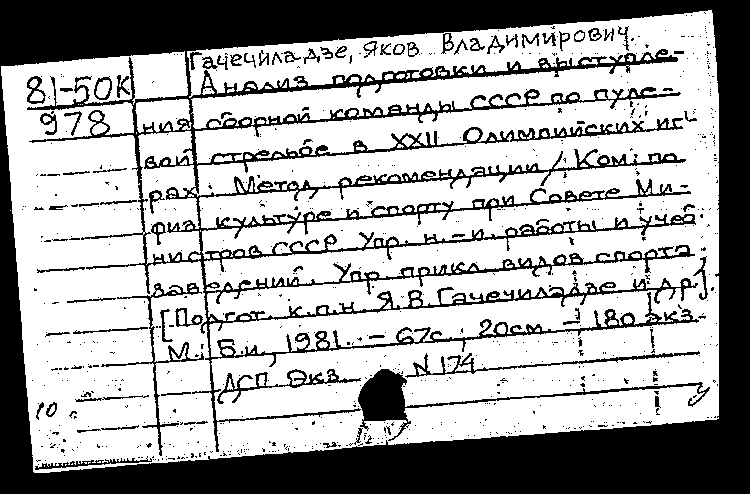 Гачечиладзе, Яков Владимирович.
81-50К Анализ подготовки и выступле-
978 ния сборной команды СССР по пуле-
вой стрельбе в XXII Олимпийских иг-
рах: Метод. рекомендации / Ком. по
физ культуре и спорту при Совете Ми-
нистров СССР. Упр. н.-и. работы и учеб.
заведений. Упр. прикл. видов спорта;
[Подгот. к.п.н. Я.В. Гачечиладзе и др.].
М.: Б.и., 1981. - 67с.; 20см. - 180 экз.
ДСП Экз. N 174
10
у